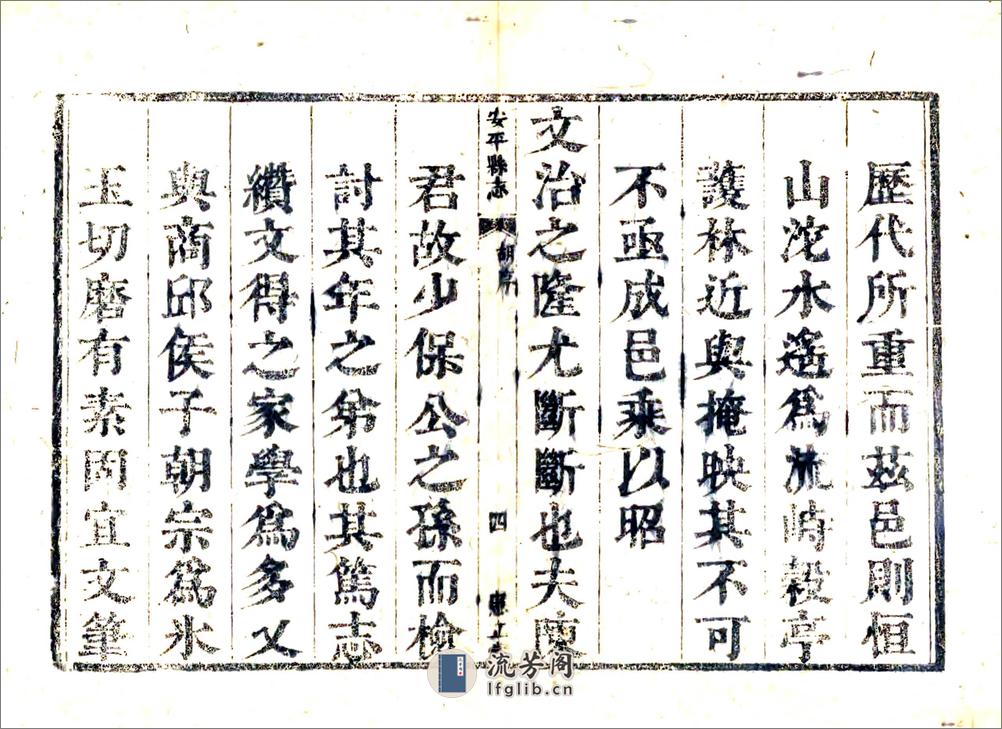 歷代所重而茲邑則恒
山沱水遙爲流峙榖亭
護林近與掩映其不可
不亟成邑乘以昭
文治之隆尤斷斷也夫陳
安平縣志
胡序
四
君故少保公之孫而檢
討其年之弟也其篤志
纘文得之家學爲多又
與商邱侯子朝宗爲氷
玉切磨有素固宜文筆
流芳阁
lfglib.cn